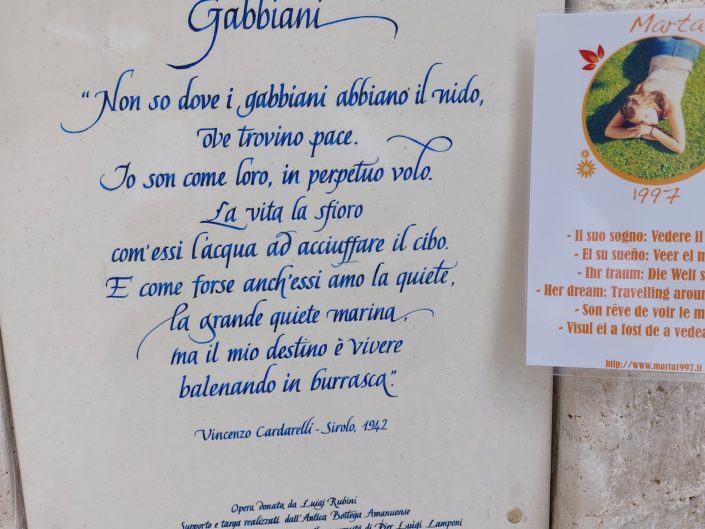 Gabbiani
"Non so dove i gabbiani abbiano il nido,
ove trovino pace.
Io son come loro, in perpetuo volo.
La vita la sfioro
com'essi l'acqua ad acciuffare il cibo.
E come forse anch'essi amo la quiete,
la grande quiete marina,
ma il mio destino è vivere
balenando in burrasca".
Vincenzo Cardarelli - Sirolo, 1942
Opera donata da Luigi Rubini
Supporto e targa realizzati dall'Antica Bottega Amanuense
di Pier Luigi Lamponi
Marta
1997
- Il suo sogno: Vedere il
- El su sueño: Veer el
- Ihr traum: Die Welt
- Her dream: Travelling
- Son rêve de voir le
- Visul ei a fost de a
http://www.marta1997.it